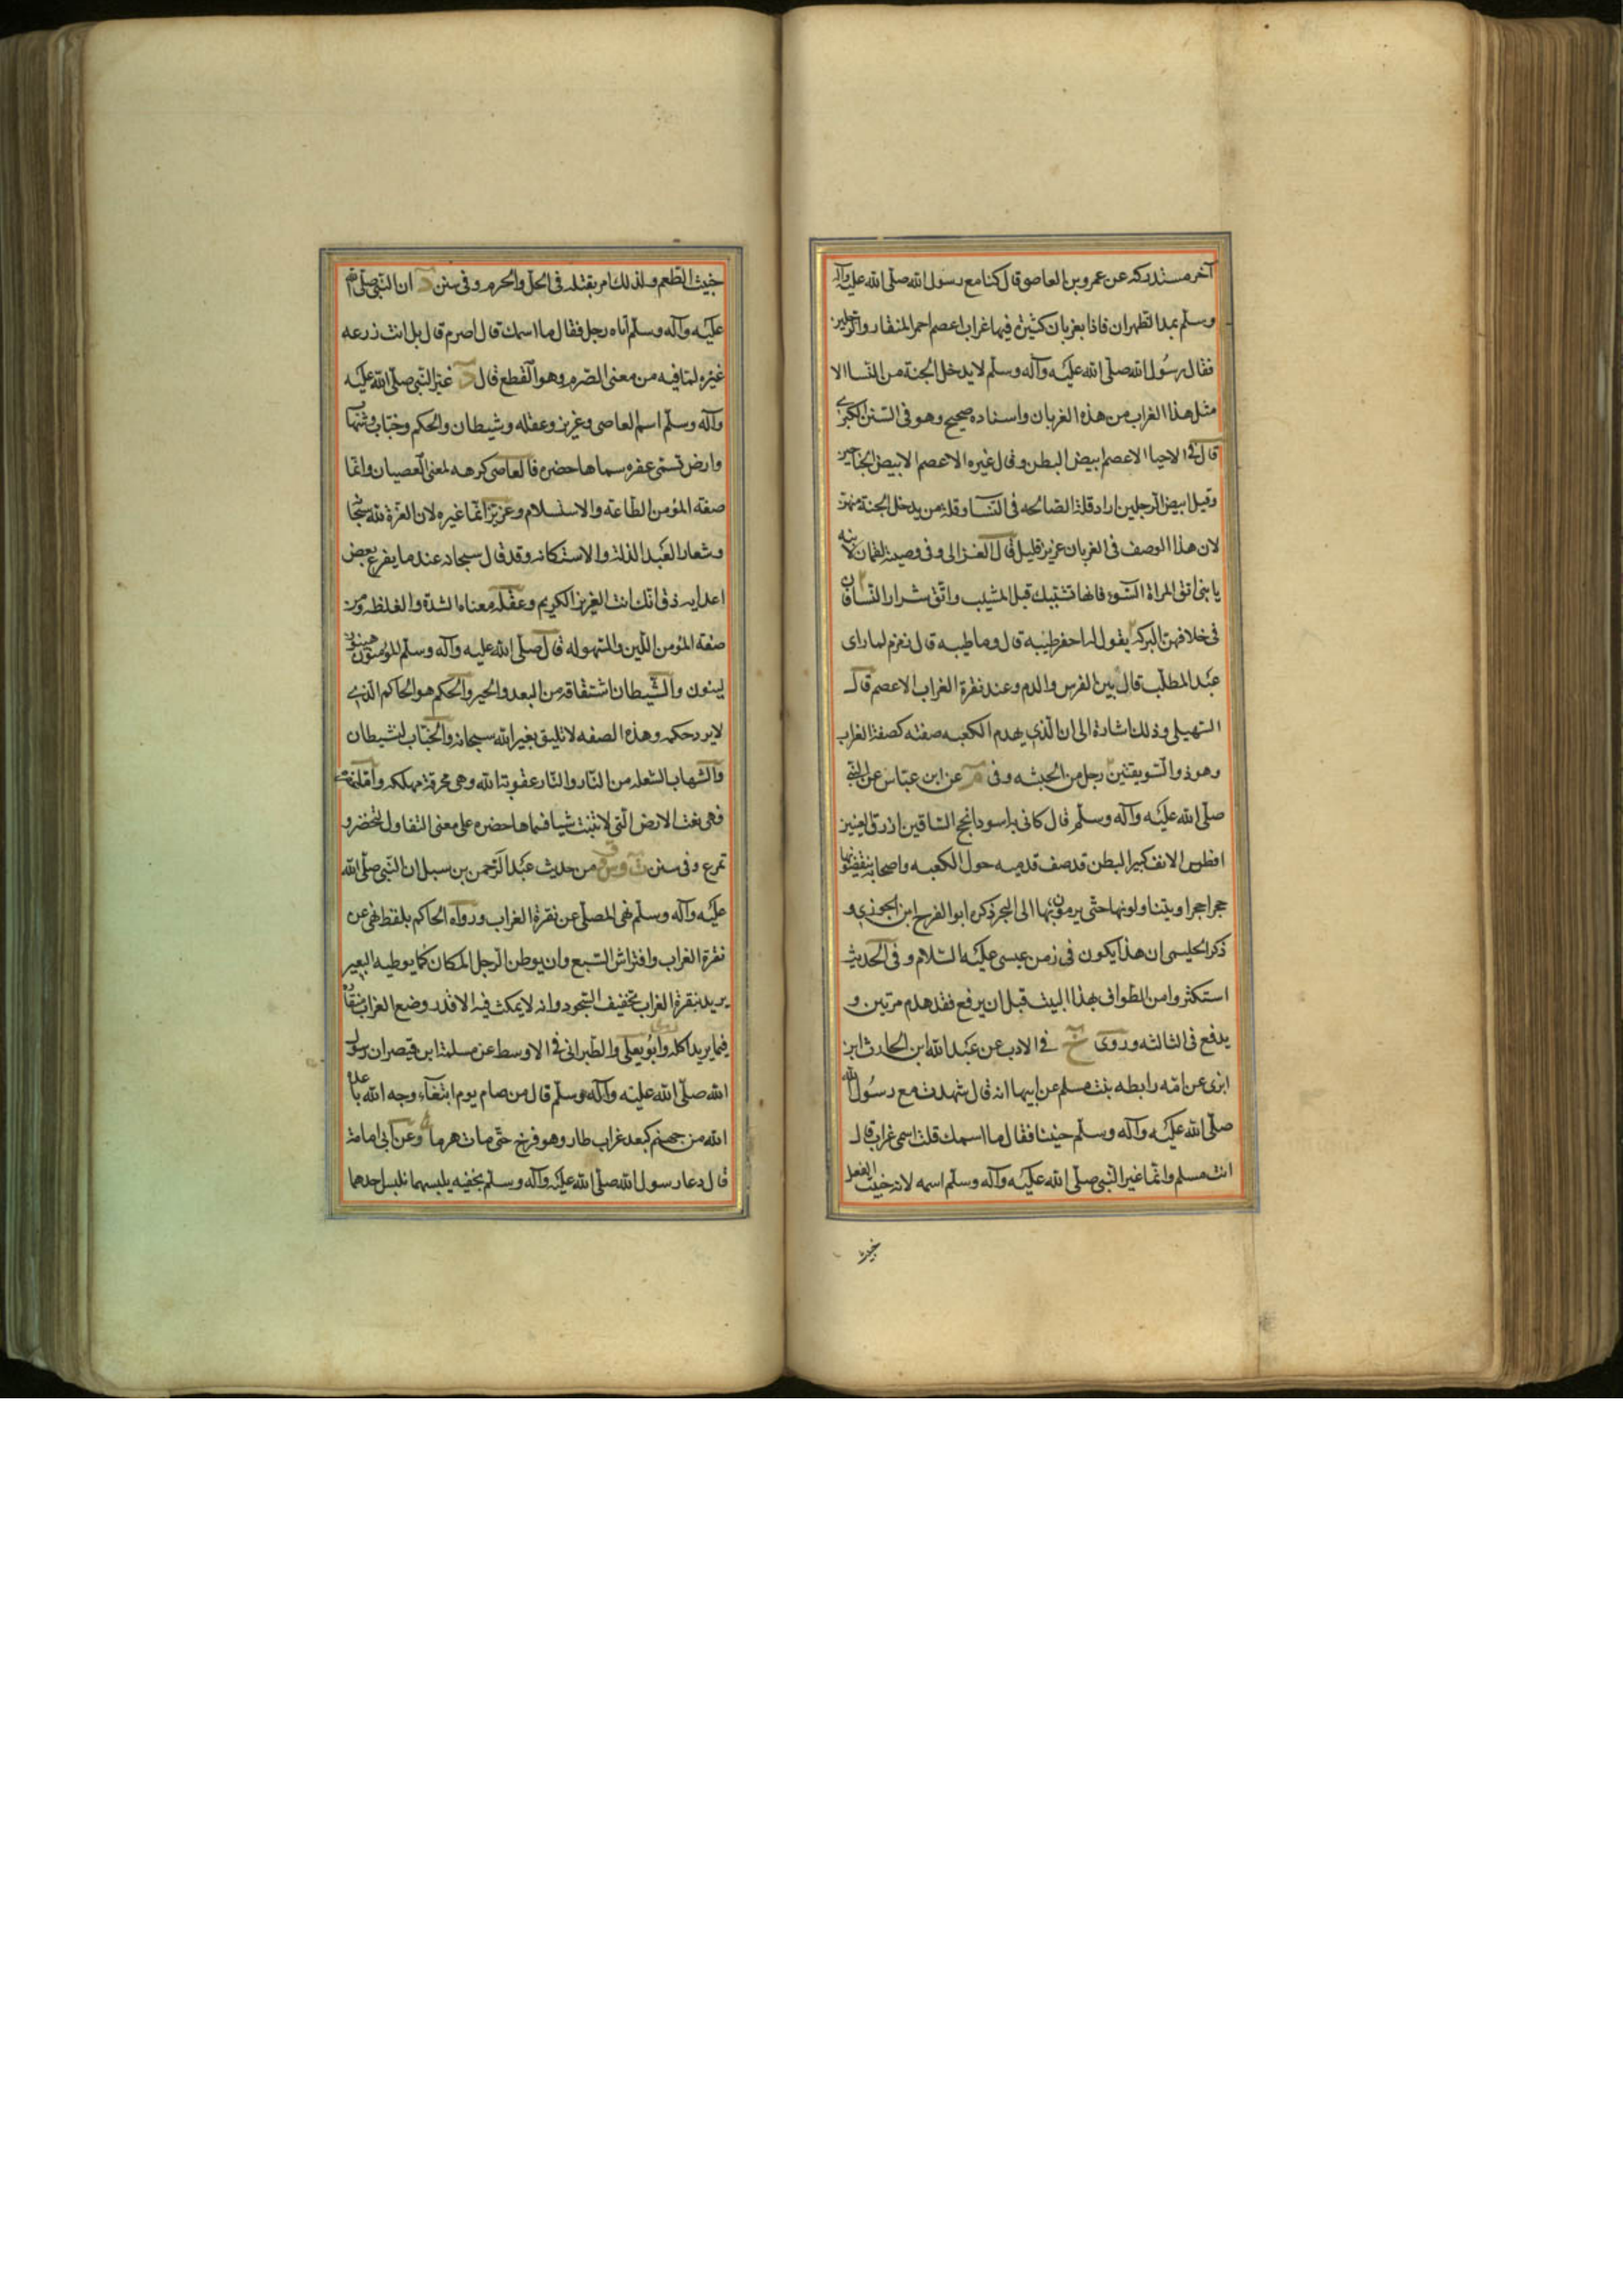 آخر مستدركه عن عمرو بن العاص وقال كنا مع رسول الله صلى الله عليه وآله
وسلم بمر الظهران فاذا بغربان كثيرة فيها غراب اعصم احمر المنقار والرجلين
فقال رسول الله صلى الله عليه وآله وسلم لا يدخل الجنة من النساء الا
مثل هذا الغراب من هذه الغربان واسناده صحيح وهو في السنن الكبرى
قال في الاحيا الاعصم ابيض البطن وقال غيره الاعصم الابيض الجناحين
وقيل ابيض الرجلين اراد قلة الصالحه في النساء وقلة من يدخل الجنة منهن
لان هذا الوصف في الغربان عزيز قليل قال الغزالى وفي وصية لقمان لابنه
يا بنى اتق المراة السوء فانها تشيبك قبل المشيب واتق شرار النساء فان
في خلافهن البركة يقول له احفر طيبه قال وما طيبه قال زمزم لما راى
عبد المطلب قال بين الفرس والدم وعند نقرة الغراب الاعصم قال
السهيلى وذلك اشارة الى ان الذي يهدم الكعبه صفته كصفة الغراب
وهو ذو السويقتين رجل من الحبشه وفي عن ابن عباس عن النبي
صلى الله عليه وآله وسلم قال كانى به اسود افحج الساقين ازرق العينين
افطس الانف كبير البطن قد صف قدميه حول الكعبه واصحابه ينقضونها
حجرا حجرا ويتناولونها حتى يرمون بها الى البحر ذكره ابو الفرج ابن الجوزي و
ذكر الحليمى ان هذا يكون في زمن عيسى عليه السلام وفي الحديث
استكثروا من الطواف بهذا البيت قبل ان يرفع فقد هدم مرتين و
يرفع في الثالثه وروى خ في الادب عن عبد الله ابن الحارث ابن
ابزى عن امه رابطه بنت مسلم عن ابيها انه قال شهدت مع رسول الله
صلى الله عليه وآله وسلم حنينا فقال ما اسمك قلت اسمى غراب قال
انت مسلم وانما غير النبي صلى الله عليه وآله وسلم اسمه لانه خبيث الفعل
خبيث
خبيث الطعم ولذلك امر بقتله في الحل والحرم وفي سنن د ان النبي صلى الله
عليه وآله وسلم اتاه رجل فقال ما اسمك قال اصرم قال بل انت زرعه
غيره لما فيه من معنى الصرم وهو القطع قال د غير النبي صلى الله عليه
وآله وسلم اسم العاصى وعزيز وعقله وشيطان والحكم وخباب وشهاب
وارض تسمى عفره سماها خضره فالعاصى كرهه لمعنى العصيان وانما
صفة المؤمن الطاعة والاستسلام وعزيز انما غيره لان العزة لله سبحانه
وشعار العبد الذلة والاستكانه وقد قال سبحانه عند ما يقرع بعض
اعدايه ذق انك انت العزيز الكريم وعقله معناها الشدة والغلظه ومن
صفة المؤمن اللين والسهوله قال صلى الله عليه وآله وسلم المؤمنون هينون
لينون والشيطان اشتقاقه من البعد والخير والحكم هو الحاكم الذي
لا يرد حكمه وهذه الصفه لا تليق بغير الله سبحانه والخباب الشيطان
والشهاب الشعله من النار والنار عقوبة الله وهي محرقة مهلكه
فهى نعت الارض التي لا تنبت شيا فسماها خضره على معنى التفاول لتخضر و
تمرع وفي سنن من حديث عبد الرحمن بن سبل ان النبي صلى الله
عليه وآله وسلم نهى المصلى عن نقرة الغراب ورواه الحاكم بلفظ نهى عن
نقرة الغراب وافتراش السبع وان يوطن الرجل المكان كما يوطيه البعير
يريد بنقرة الغراب تخفيف السجود وانه لا يمكث فيه الا قدر وضع الغراب منقاره
فيما يريد اكله وابو يعلى والطبرانى في الاوسط عن مسلمة ابن قيصر ان رسول
الله صلى الله عليه وآله وسلم قال من صام يوم ابتغاء وجه الله باعده
الله من جهنم كبعد غراب طار وهو فرخ حتى مات هرما وعن ابى امامة
قال دعا رسول الله صلى الله عليه وآله وسلم بخفيه يلبسهما فلبس احدهما